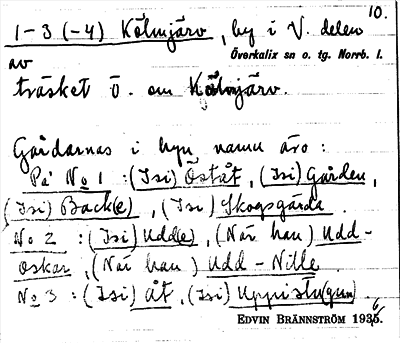 10.
1-3 (-4) Kölmjärv, by i V. delen
Överkalix sn o. tg. Norrb. l.
av
träsket Ö. om Kölmjärv.
Gårdarnas i byn namn äro:
På No 1 : (Isi) Öståt, (Isi) Gården,
(Isi) Back(e), (Isi) Skogsgårda
No 2 : (Isi) Udd(e), (När han) Udd-
Oskar, (När han) Udd-Nille
No 3 : (Isi) åt, (Isi) Uppistu(gun)
EDVIN BRÄNNSTRÖM 1936.